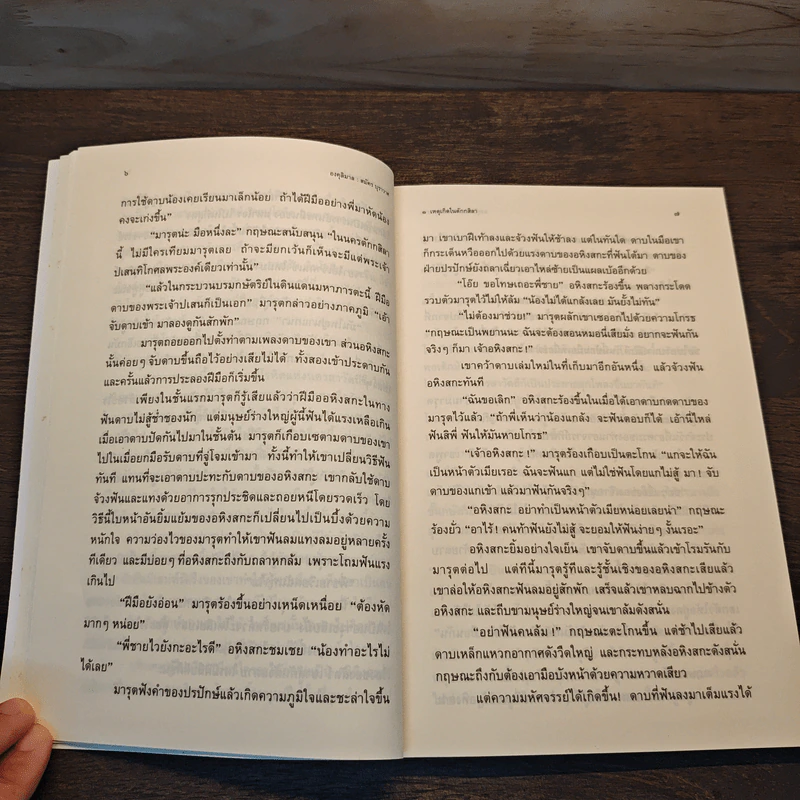 ๖
องคุลิมาล : สมัคร บุราวาศ
การใช้ดาบน้องเคยเรียนมาเล็กน้อย ถ้าได้ฝีมืออย่างพี่มาหัดน้อง
คงจะเก่งขึ้น”
“มารุตน่ะ มือหนึ่งละ” กฤษณะสนับสนุน “ในนครตักกสิลา
นี้ ไม่มีใครเทียมมารุตเลย ถ้าจะมียกเว้นก็เห็นจะมีแต่พระเจ้า
ปเสนทิโกศลพระองค์เดียวเท่านั้น”
“แล้วในกระบวนบรมกษัตริย์ในดินแดนมหาภารตะนี้ ฝีมือ
ดาบของพระเจ้าปเสนก็เป็นเอก” มารุตกล่าวอย่างภาคภูมิ “เอ้า
จับดาบเข้า มาลองดูกันสักพัก”
มารุตถอยออกไปตั้งท่าตามเพลงดาบของเขา ส่วนอหิงสกะ
นั้นค่อยๆ จับดาบขึ้นถือไว้อย่างเสียไม่ได้ ทั้งสองเข้าประดาบกัน
และครั้นแล้วการประลองฝีมือก็เริ่มขึ้น
เพียงในชั้นแรกมารุตก็รู้เสียแล้วว่าฝีมืออหิงสกะในทาง
ฟันดาบไม่สู้ช่ำของนัก แต่มนุษย์ร่างใหญ่ผู้นี้ฟันได้แรงเหลือเกิน
เมื่อเอาดาบปัดกันไปมาในชั้นต้น มารุตก็เกือบเซตามดาบของเขา
ไปในเมื่อยกมือรับดาบที่จู่โจมเข้ามา ทั้งนี้ทำให้เขาเปลี่ยนวิธีฟัน
ทันที แทนที่จะเอาดาบปะทะกับดาบของอหิงสกะ เขากลับใช้ดาบ
จ้วงฟันและแทงด้วยอาการรุกประชิดและถอยหนีโดยรวดเร็ว โดย
วิธีนี้ใบหน้าอันยิ้มแย้มของอหิงสกะก็เปลี่ยนไปเป็นบึ้งด้วยความ
หนักใจ ความว่องไวของมารุตทำให้เขาฟันลมแทงลมอยู่หลายครั้ง
ทีเดียว และมีบ่อยๆ ที่อหิงสกะถึงกับถลาหกล้ม เพราะโถมฟันแรง
เกินไป
“ฝีมือยังอ่อน” มารุตร้องขึ้นอย่างเหน็ดเหนื่อย “ต้องหัด
มากๆ หน่อย”
“พี่ชายไวยังกะอะไรดี” อหิงสกะชมเชย “น้องทำอะไรไม่
ได้เลย”
มารุตฟังคำของปรปักษ์แล้วเกิดความภูมิใจและชะล่าใจขึ้น
๓ เหตุเกิดในตักกสิลา
๗
มา เขาเบาฝีเท้าลงและจ้วงฟันให้ช้าลง แต่ในทันใด ดาบในมือเขา
ก็กระเด็นหวือออกไปด้วยแรงดาบของอหิงสกะที่ฟันได้มา ดาบของ
ฝ่ายปรปักษ์ยังถลาเฉี่ยวเอาไหล่ซ้ายเป็นแผลเบ้ออีกด้วย
“โอ๊ย ขอโทษเถอะพี่ชาย” อหิงสกะร้องขึ้น พลางกระโดด
รวบตัวมารุตไว้ไม่ให้ล้ม “น้องไม่ได้แกล้งเลย มันยั้งไม่ทัน”
“ไม่ต้องมาช่วย!” มารุตผลักเขาเซออกไปด้วยความโกรธ
“กฤษณะเป็นพยานนะ ฉันจะต้องสอนหมอนี่เสียมั่ง อยากจะฟันกัน
จริงๆ ก็มา เจ้าอหิงสกะ!”
เขาคว้าดาบเล่มใหม่ในที่เก็บมาอีกอันหนึ่ง แล้วจ้วงฟัน
อหิงสกะทันที
“ฉันขอเลิก” อหิงสกะร้องขึ้นในเมื่อได้เอาดาบกดดาบของ
มารุตไว้แล้ว “ถ้าพี่เห็นว่าน้องแกล้ง จะฟันตอบก็ได้ เอ้านี่ไหล่
ฟันสิพี่ ฟันให้มันหายโกรธ”
“เจ้าอหิงสกะ!” มารุตร้องเกือบเป็นตะโกน “แกจะให้ฉัน
เป็นหน้าตัวเมียเรอะ ฉันจะฟันแก แต่ไม่ใช่ฟันโดยแกไม่สู้ มา! จับ
ดาบของแกเข้า แล้วมาฟันกันจริงๆ”
“อหิงสกะ อย่าทำเป็นหน้าตัวเมียหน่อยเลยน่า” กฤษณะ
ร้องยั่ว “อาไร้! คนท้าฟันยังไม่สู้ จะยอมให้ฟันง่ายๆ งั้นเรอะ”
อหิงสกะยิ้มอย่างใจเย็น เขาจับดาบขึ้นแล้วเข้าโรมรันกับ
มารุตต่อไป แต่ทีนี้มารุตรู้ทีและรู้ชั้นเชิงของอหิงสกะเสียแล้ว
เขาล่อให้อหิงสกะฟันลมอยู่สักพัก เสร็จแล้วเขาหลบฉากไปข้างตัว
อหิงสกะ และถีบขามนุษย์ร่างใหญ่จนเขาล้มดังสนั่น
“อย่าฟันคนล้ม!” กฤษณะตะโกนขึ้น แต่ช้าไปเสียแล้ว
ดาบเหล็กแหวกอากาศดังวืดใหญ่ และกระทบหลังอหิงสกะดังสนั่น
กฤษณะถึงกับต้องเอามือบังหน้าด้วยความหวาดเสียว
แต่ความมหัศจรรย์ได้เกิดขึ้น! ดาบที่ฟันลงมาเต็มแรงได้